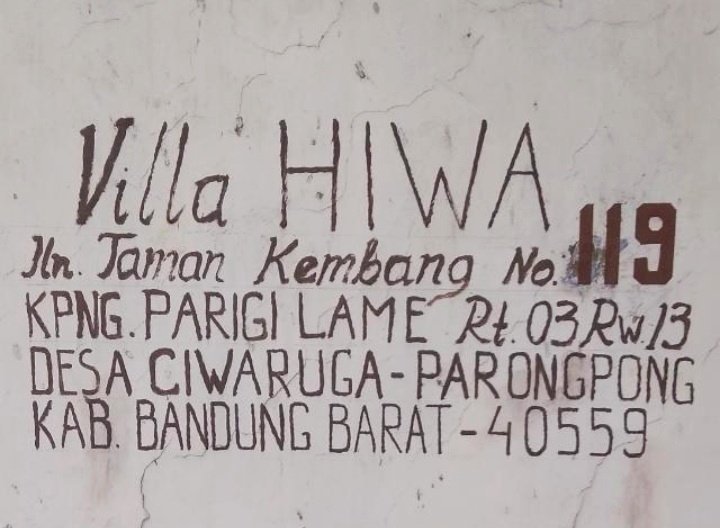 Villa HIWA
Jln. Taman Kembang No. 119
KPNG. PARIGI LAME Rt. 03 Rw. 13
DESA CIWARUGA - PARONGPONG
KAB. BANDUNG BARAT - 40559